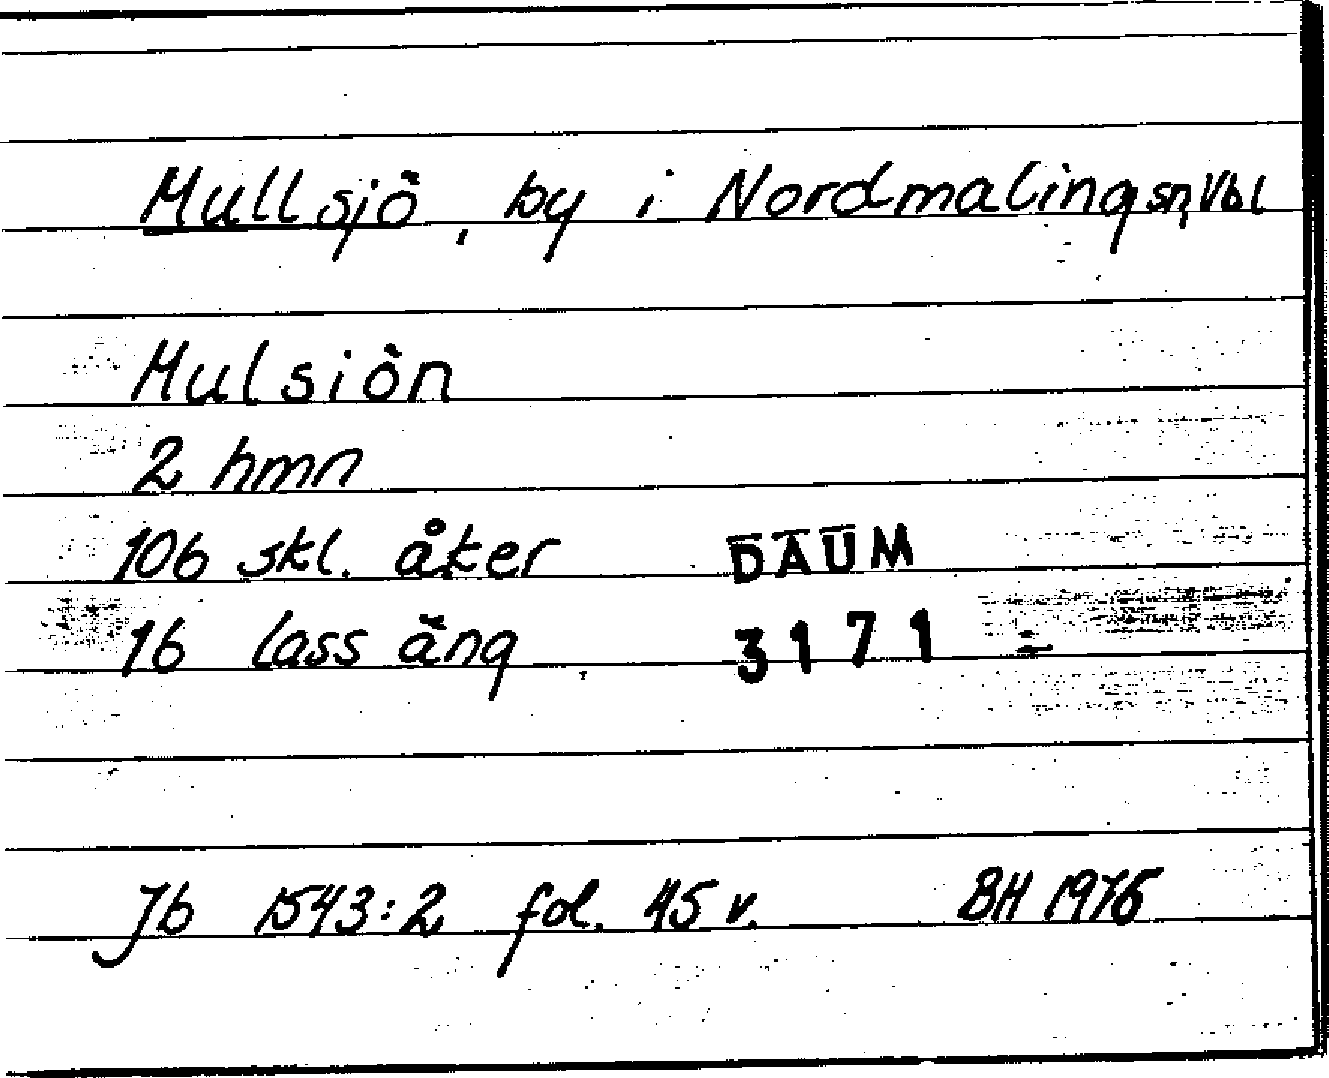 Mullsjö, by i Nordmalings sn, Vbl
Mulsiön
2 hmn
106 skl. åker
DAUM
16 lass äng.
3171
Jb 1543:2 fol. 45 v.
BH 1976